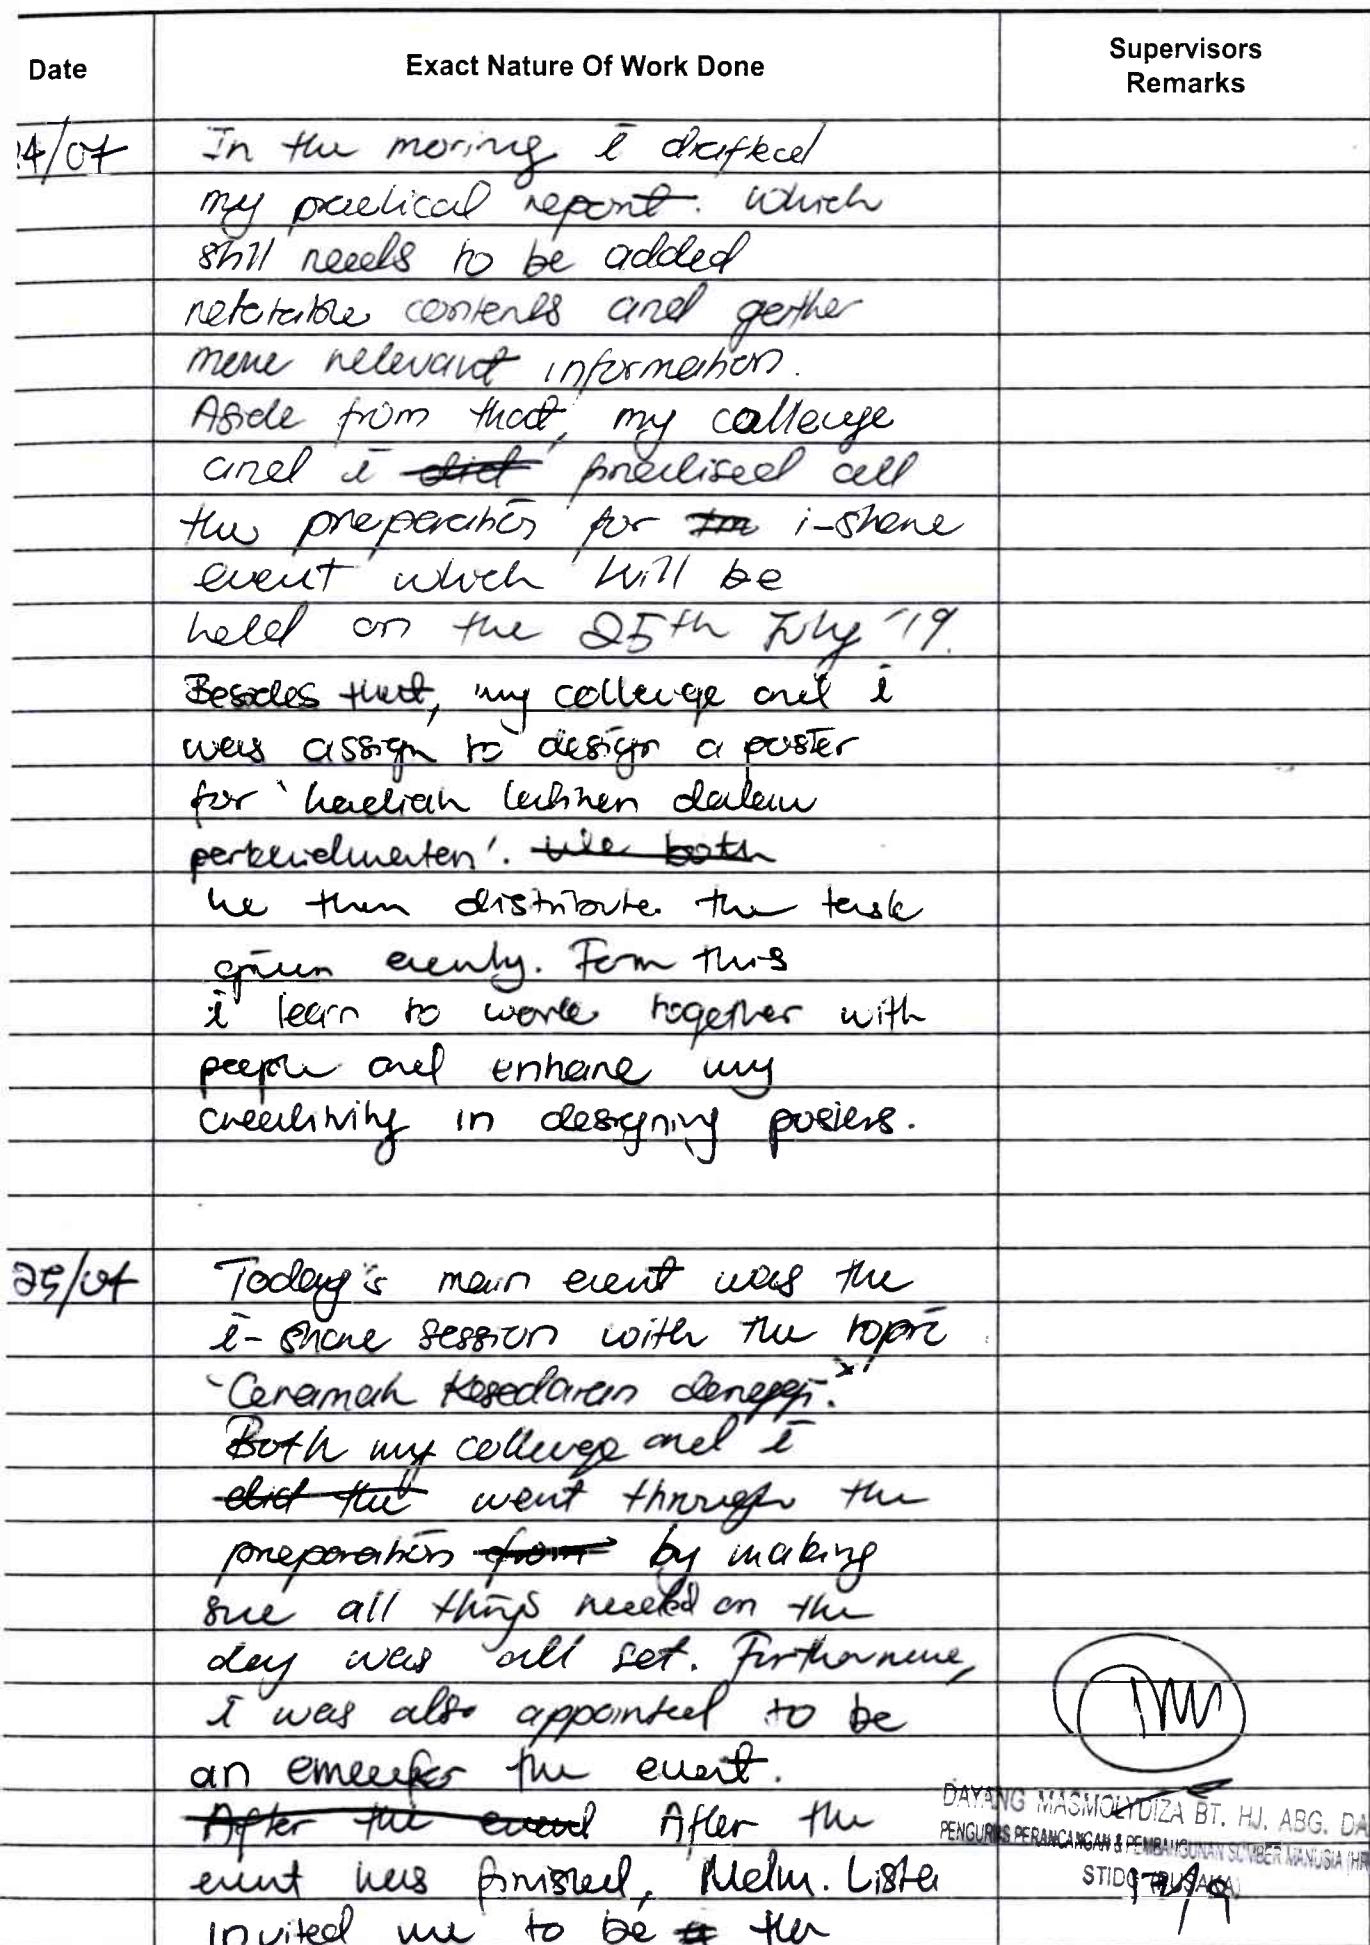 Date Exact Nature Of Work Done Supervisors
Remarks
24/07 In the moring i drafted
my practical report. Which
still needs to be added
contents and gether
more relevant information.
Aside from that, my colleuge
and i did finalised all
the preparation for i-share
event which will be
held on the 25th July '19.
Besides that, my colleuge and i
was assign to design a poster
for 'hadiah latihan dalam
perkhidmatan'. We both
we then distribute the task
given evenly. Form this
i learn to work together with
people and enhane my
creativity in designing posters.
25/07 Today's main event was the
i-share session with the topic
'Ceramah Kesedaran denggi.'
Both my colleuge and i
did the went through the
preparation from by making
sure all things needed on the
day was all set. Furthermore,
i was also appointed to be
an emcee for the event.
After the event After the
event was finished, Mdm. Lister
invited me to be a the
DAYANG MASMOLYDIZA BT. HJ. ABG. DA
PENGURUS PERANCANGAN & PEMBANGUNAN SUMBER MANUSIA (HR
STIDC (PUSAKA)